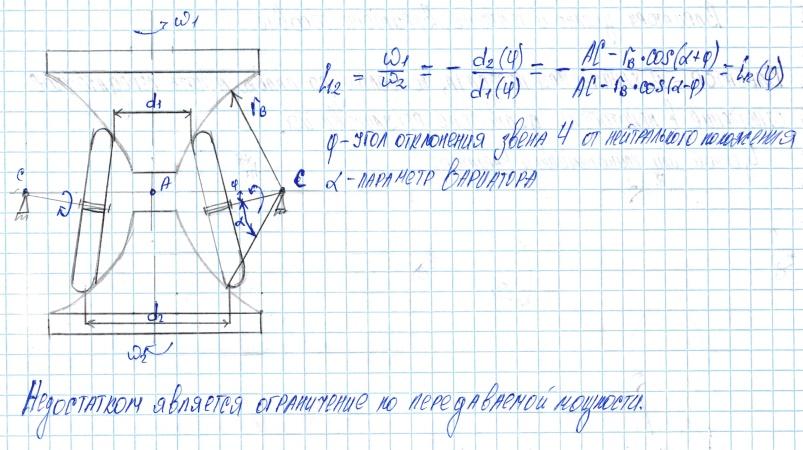 ω1
i12 = ω1/ω2 = - d2(φ)/d1(φ) = - AC - rв·cos(α+φ)/AC - rв·cos(α-φ) = i12(φ)
φ - угол отклонения звена 4 от нейтрального положения
α - параметр вариатора
d1
rв
C
A
φ
C
α
d2
ω2
Недостатком является ограничение по передаваемой мощности.